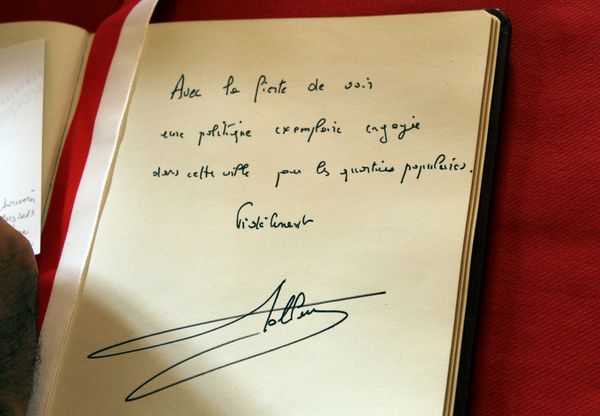 Avec la fierté de voir
une politique exemplaire engagée
dans cette ville pour les quartiers populaires.
Fidèlement